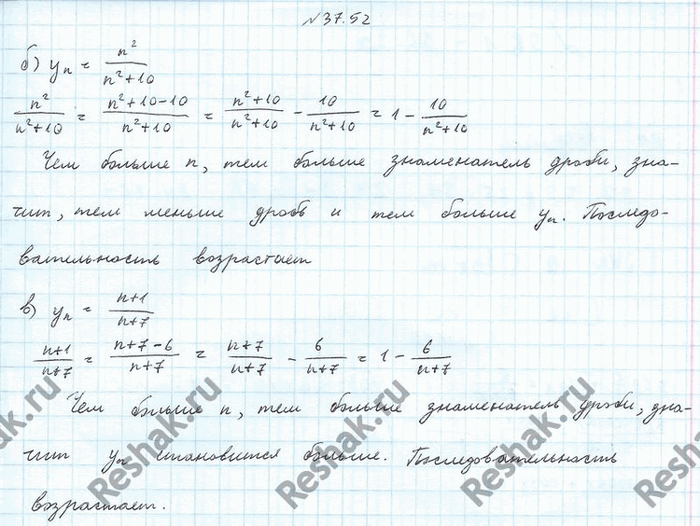 №37.52
б) yₙ = n²/(n²+10)
n²/(n²+10) = (n²+10-10)/(n²+10) = (n²+10)/(n²+10) - 10/(n²+10) = 1 - 10/(n²+10)
Чем больше n, тем больше знаменатель дроби, зна-
чит, тем меньше дробь и тем больше yₙ. Последо-
вательность возрастает
в) yₙ = (n+1)/(n+7)
(n+1)/(n+7) = (n+7-6)/(n+7) = (n+7)/(n+7) - 6/(n+7) = 1 - 6/(n+7)
Чем больше n, тем больше знаменатель дроби, зна-
чит yₙ становится больше. Последовательность
возрастает.
Reshak.ru
Reshak.ru
Reshak.ru
Reshak.ru